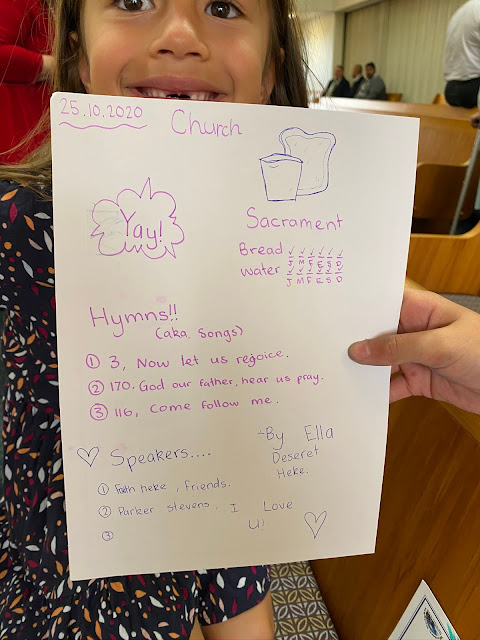 25.10.2020
Church
Yay!
Sacrament
Bread ✓ ✓ ✓ ✓ ✓ ✓
J M F E S D
water ✓ ✓ ✓ ✓ ✓ ✓
J M F E S D
Hymns!!
(aka. Songs)
① 3, Now let us rejoice.
② 170. God our father, hear us pray.
③ 116, Come follow me.
Speakers....
① Faith heke, friends.
② Parker stevens.
③
~By Ella
Deseret
Heke.
I Love
U!